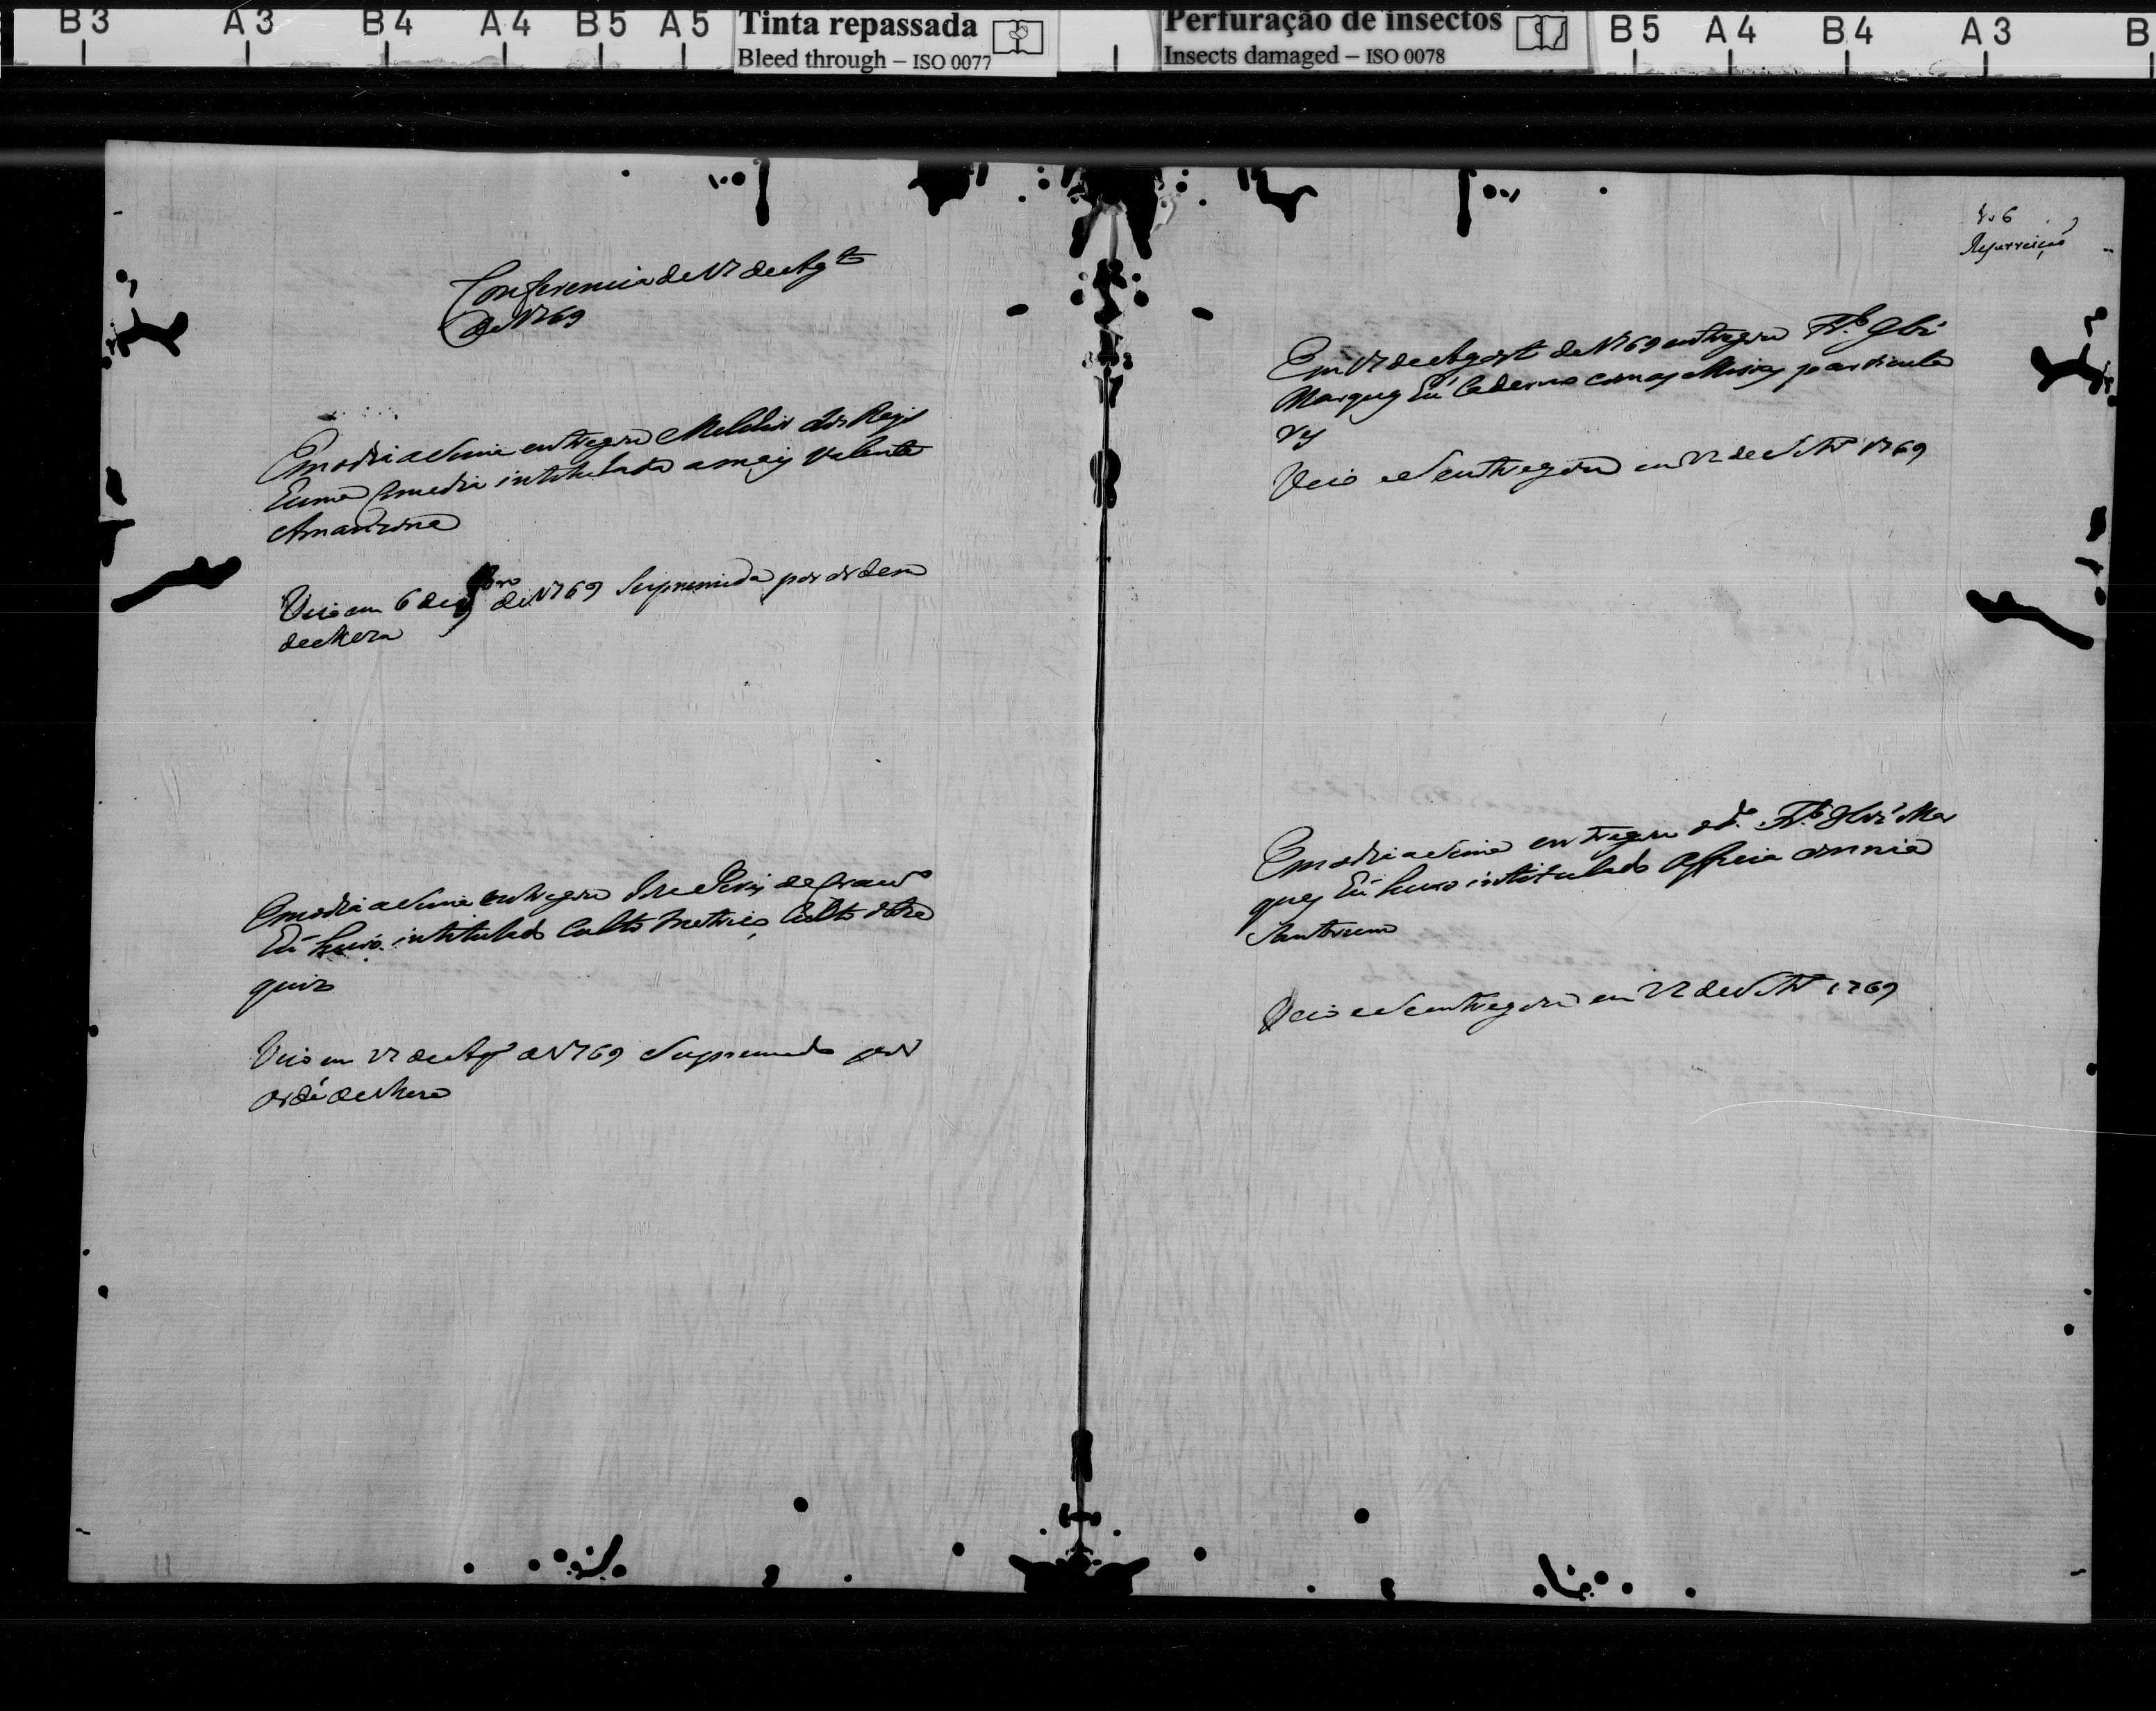 B3 A3 B4 A4 B5 A5 Tinta repassada
Bleed through – ISO 0077
Perfuração de insectos
Insects damaged – ISO 0078
B5 A4 B4 A3 B
Conferencia de 17 de Agto
de 1769
Em o dia asima entregou Melchior dos Reys
huma Comedia intitulada a mais valente
Amazona
Veio em 6 de de 1769 Suprimida por ordem
de Meza
Em o dia asima entregou de
hũ Livro intitulado Culto metrico, Culto obse
quio
Veio em 17 de Agto de 1769 Supremido por
ordẽ de Meza
Repartição
Em 17 de Agosto de 1769 entregou
Marques hũ Caderno com as Missas particula
res
Veio e Se entregou em 22 de 1769
Em o dia asima entregou o do. Mar
ques hũ Livro intitulado Officia omnia
Santorum
Veio e Se entregou em 22 de 1769